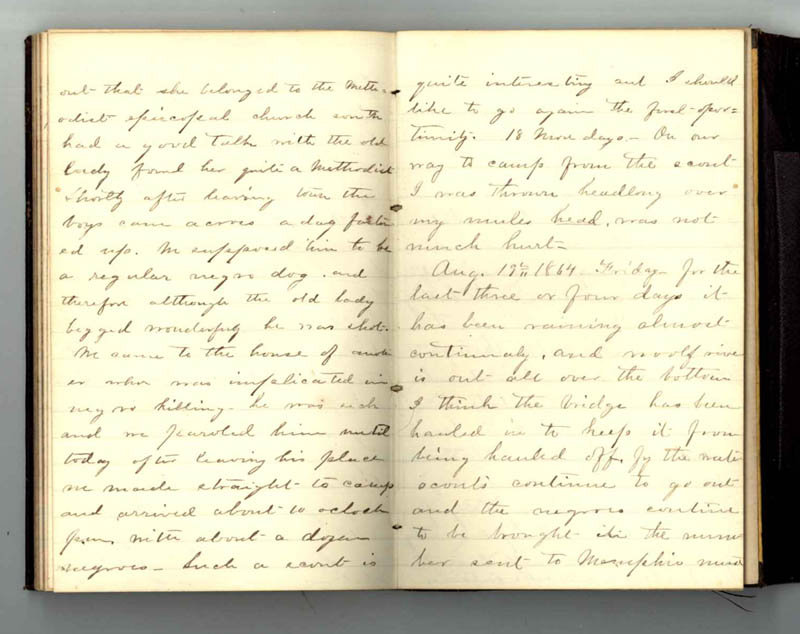 out that she belonged to the Meth-
odist episcopal church south
had a good talk with the old
lady found her quite a Methodist
Shortly after leaving town the
boys came across a dog fasten
ed up. We supposed him to be
a regular negro dog. and
therefore although the old lady
begged wonderfuly he was shot.
We came to the house of anoth
er who was implicated in
negro killing - he was sick
and we paroled him until
today after leaving his place
we made straight to camp
and arrived about 10 oclock
p.m. with about a dozen
negroes - Such a scout is
quite interesting and I should
like to go again the first opor=
tunity. 18 More days - On our
way to camp from the scout
I was thrown headlong over
my mules head, was not
much hurt -
Aug. 19th 1864 Friday - for the
last three or four days it
has been raining almost
continualy, and woolf river
is out all over the bottom
I think the bridge has been
hauled in to keep it from
being hauled off by the water
scouts continue to go out
and the negroes continue
to be brought in the num
ber sent to Memphis must